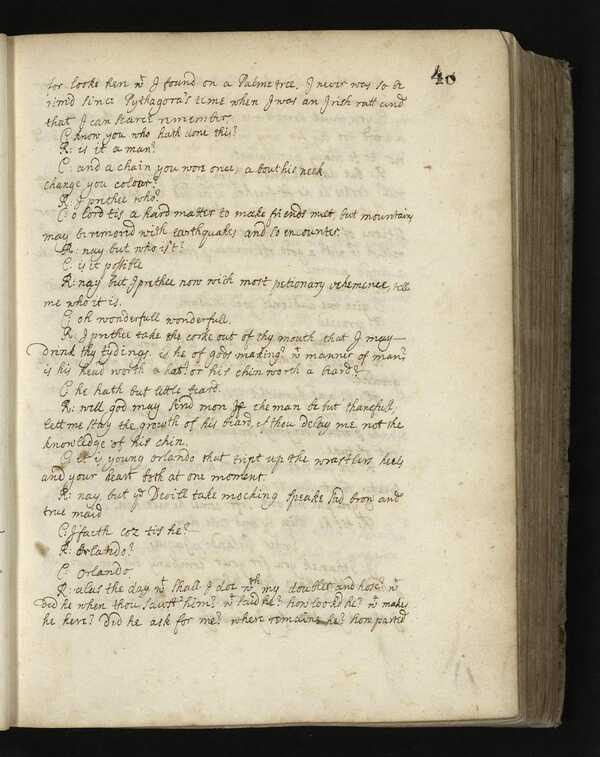 40
for looke here wt I found on a Palme tree. I never was so be
rimd since Pythagora's time when I was an Irish ratt and
that I can scarce remember.
C: know you who hath done this?
R: is it a man?
C: and a chain you wore once, about his neck
change you colour?
R: I prethee who?
C: o lord tis a hard matter to make friends meet, but mountains
may be removed with earthquakes and so encounter.
R: nay but who is't?
C: is it possible
R: nay but I prethee now with most petionary vehemence, tell
me who it is.
C: oh wonderfull wonderfull.
R. I prethee take the corke out of thy mouth that I may
Drink thy tydings. is he of gods making? wt manner of man?
is his head worth a hat? or his chin worth a beard?
C he hath but little beard.
R: well god may send mon If the man be but thankfull,
lett me stay the growth of his beard, if thou delay me not the
knowledge of his chin.
C: it is young orlando that tript up the wrastlers heels
and your heart both at one moment.
R: nay, but ye Devill take mocking speake sad brow and
true maid
C: I'faith coz tis he?
R: Orlando?
C Orlando
R: alas the day wt shall I doe wth my doublet and hose? wt
Did he when thou sawst him? wt said he? how lookd he? wt makes
he here? Did he ask for me? where remains he? how parted